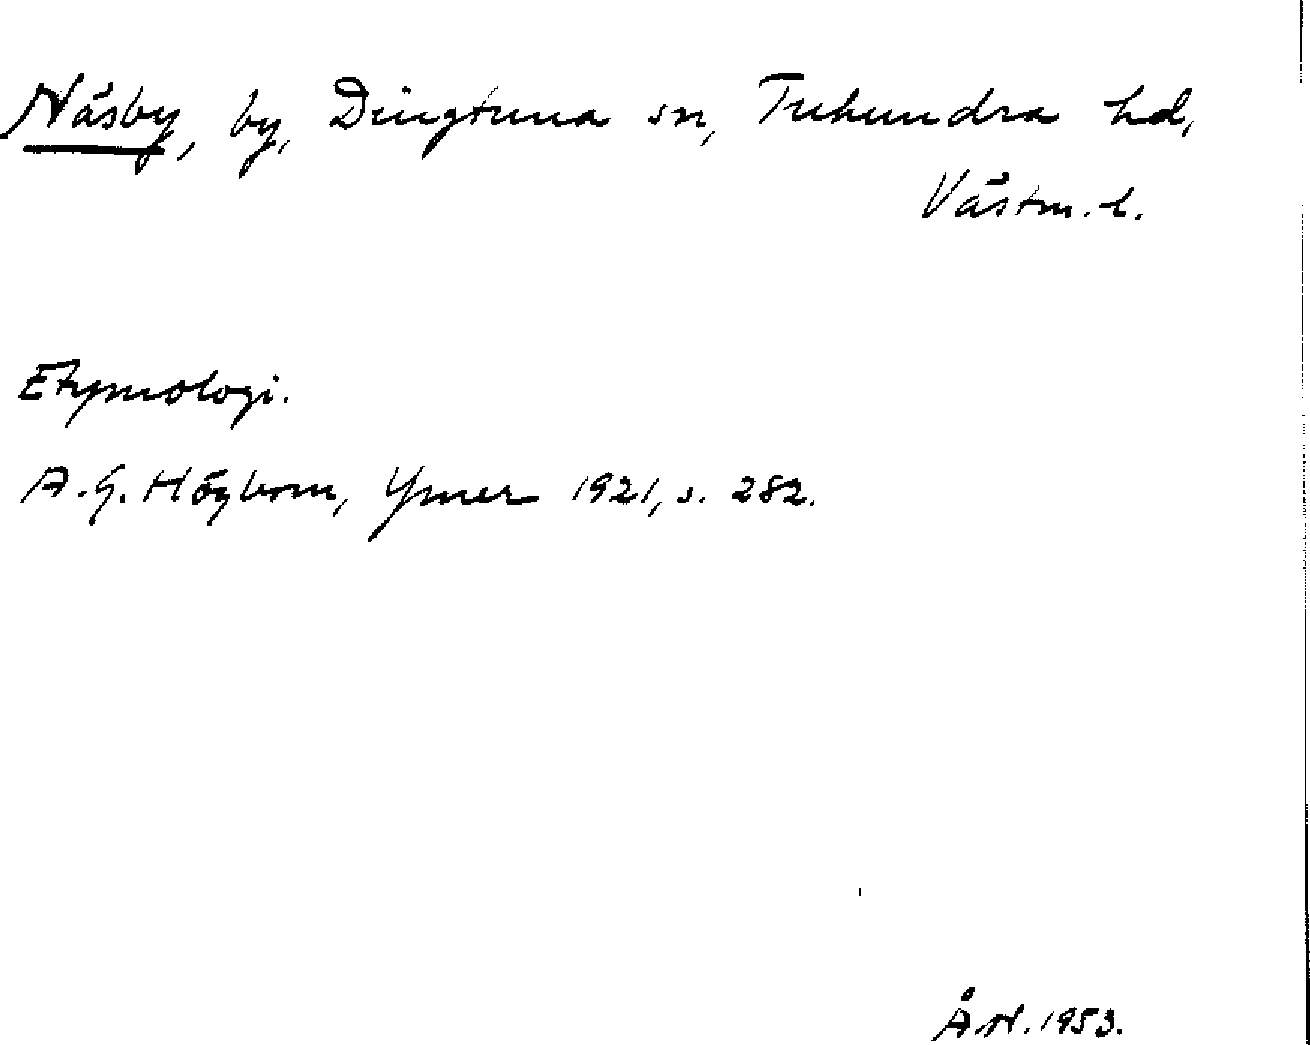 Näsby, by, Dingtuna sn, Tuhundra hd,
Västm. l.
Etymologi.
A. G. Högbom, Ymer 1921, s. 282.
Å.N. 1953.